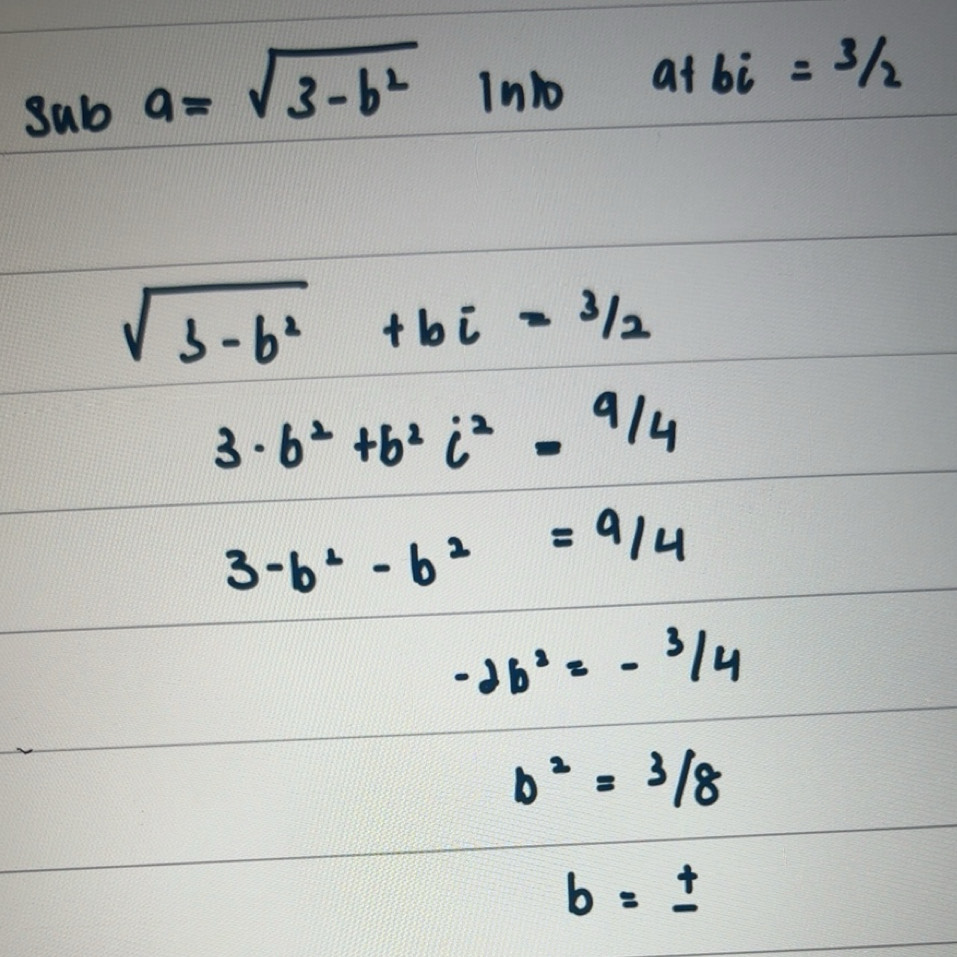 Sub a = √3-b² into a+bi = 3/2
√3-b² +bi = 3/2
3-b² +b² i² = 9/4
3-b² -b² = 9/4
-2b² = - 3/4
b² = 3/8
b = ±